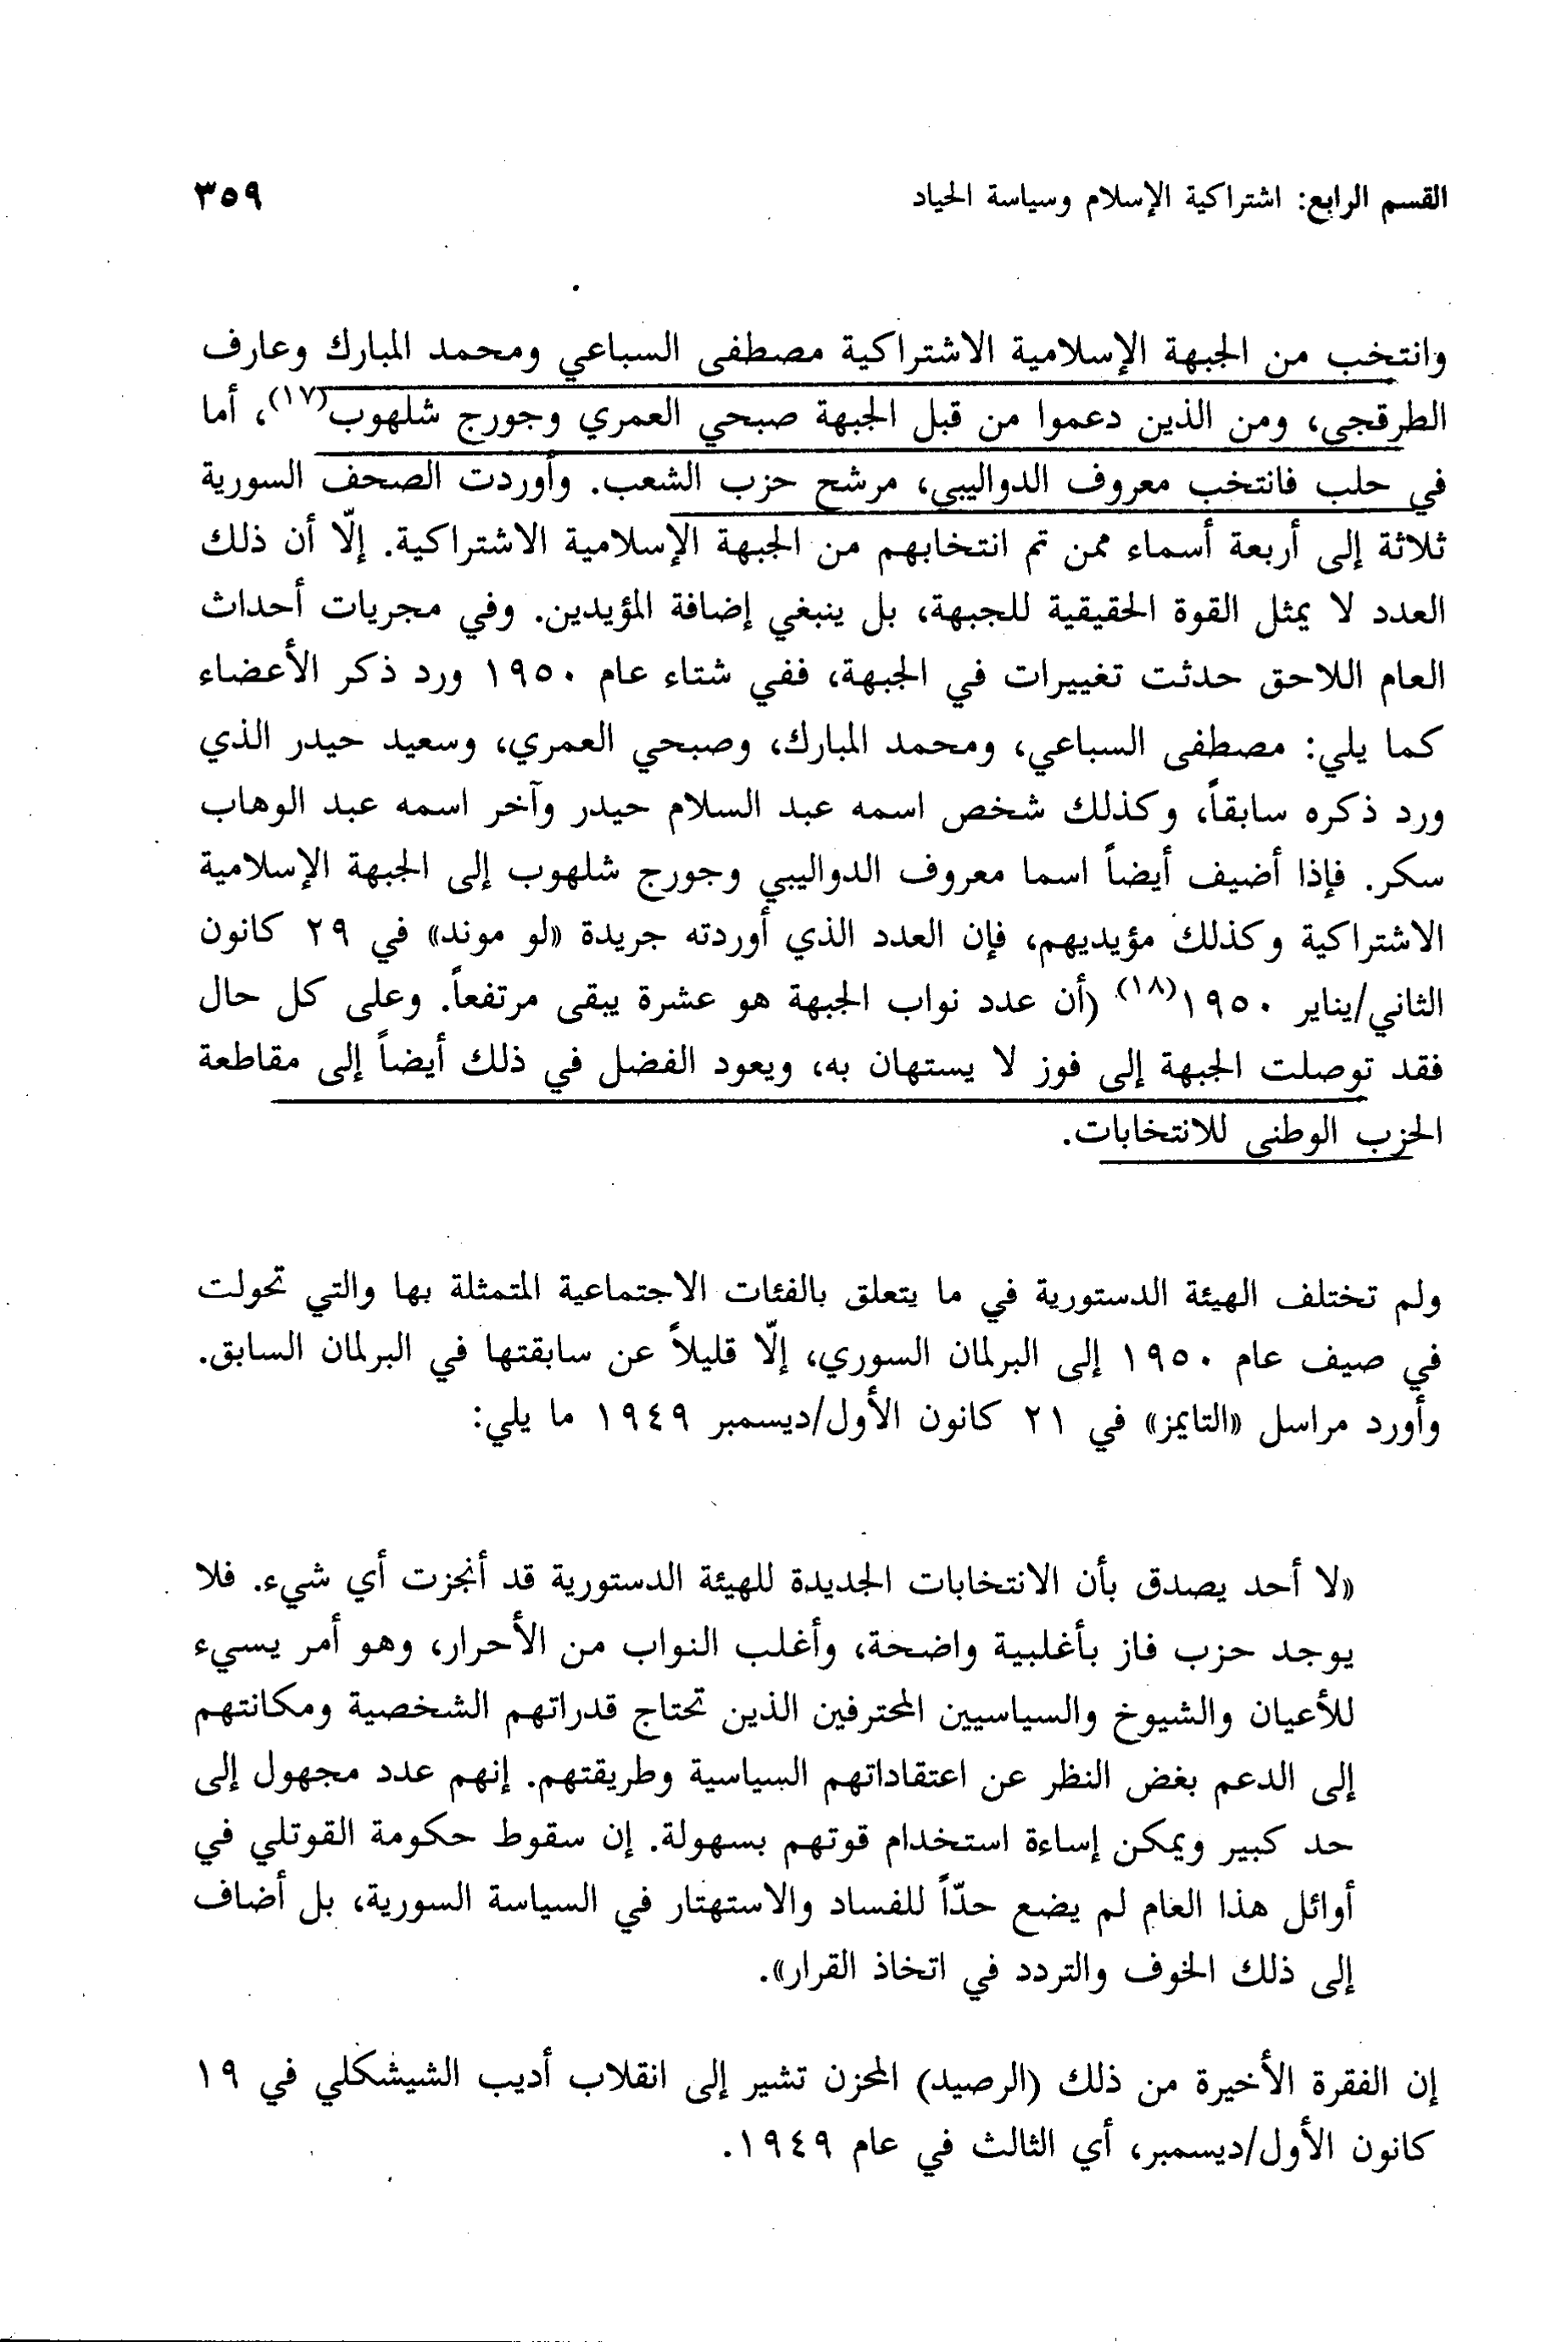 القسم الرابع: اشتراكية الإسلام وسياسة الحياد ٣٥٩
وانتخب من الجبهة الإسلامية الاشتراكية مصطفى السباعي ومحمد المبارك وعارف
الطرقجي، ومن الذين دعموا من قبل الجبهة صبحي العمري وجورج شلهوب(١٧)، أما
في حلب فانتخب معروف الدواليبي، مرشح حزب الشعب. وأوردت الصحف السورية
ثلاثة إلى أربعة أسماء ممن تم انتخابهم من الجبهة الإسلامية الاشتراكية. إلّا أن ذلك
العدد لا يمثل القوة الحقيقية للجبهة، بل ينبغي إضافة المؤيدين. وفي مجريات أحداث
العام اللاحق حدثت تغييرات في الجبهة، ففي شتاء عام ١٩٥٠ ورد ذكر الأعضاء
كما يلي: مصطفى السباعي، ومحمد المبارك، وصبحي العمري، وسعيد حيدر الذي
ورد ذكره سابقاً، وكذلك شخص اسمه عبد السلام حيدر وآخر اسمه عبد الوهاب
سكر. فإذا أضيف أيضاً اسما معروف الدواليبي وجورج شلهوب إلى الجبهة الإسلامية
الاشتراكية وكذلك مؤيديهم، فإن العدد الذي أوردته جريدة «لو موند» في ٢٩ كانون
الثاني/يناير ١٩٥٠(١٨) (أن عدد نواب الجبهة هو عشرة يبقى مرتفعاً. وعلى كل حال
فقد توصلت الجبهة إلى فوز لا يستهان به، ويعود الفضل في ذلك أيضاً إلى مقاطعة
الحزب الوطني للانتخابات.
ولم تختلف الهيئة الدستورية في ما يتعلق بالفئات الاجتماعية المتمثلة بها والتي تحولت
في صيف عام ١٩٥٠ إلى البرلمان السوري، إلّا قليلاً عن سابقتها في البرلمان السابق.
وأورد مراسل «التايمز» في ٢١ كانون الأول/ديسمبر ١٩٤٩ ما يلي:
«لا أحد يصدق بأن الانتخابات الجديدة للهيئة الدستورية قد أنجزت أي شيء. فلا
يوجد حزب فاز بأغلبية واضحة، وأغلب النواب من الأحرار، وهو أمر يسيء
للأعيان والشيوخ والسياسيين المحترفين الذين تحتاج قدراتهم الشخصية ومكانتهم
إلى الدعم بغض النظر عن اعتقاداتهم السياسية وطريقتهم. إنهم عدد مجهول إلى
حد كبير ويمكن إساءة استخدام قوتهم بسهولة. إن سقوط حكومة القوتلي في
أوائل هذا العام لم يضع حدّاً للفساد والاستهتار في السياسة السورية، بل أضاف
إلى ذلك الخوف والتردد في اتخاذ القرار».
إن الفقرة الأخيرة من ذلك (الرصيد) المحزن تشير إلى انقلاب أديب الشيشكلي في ١٩
كانون الأول/ديسمبر، أي الثالث في عام ١٩٤٩.